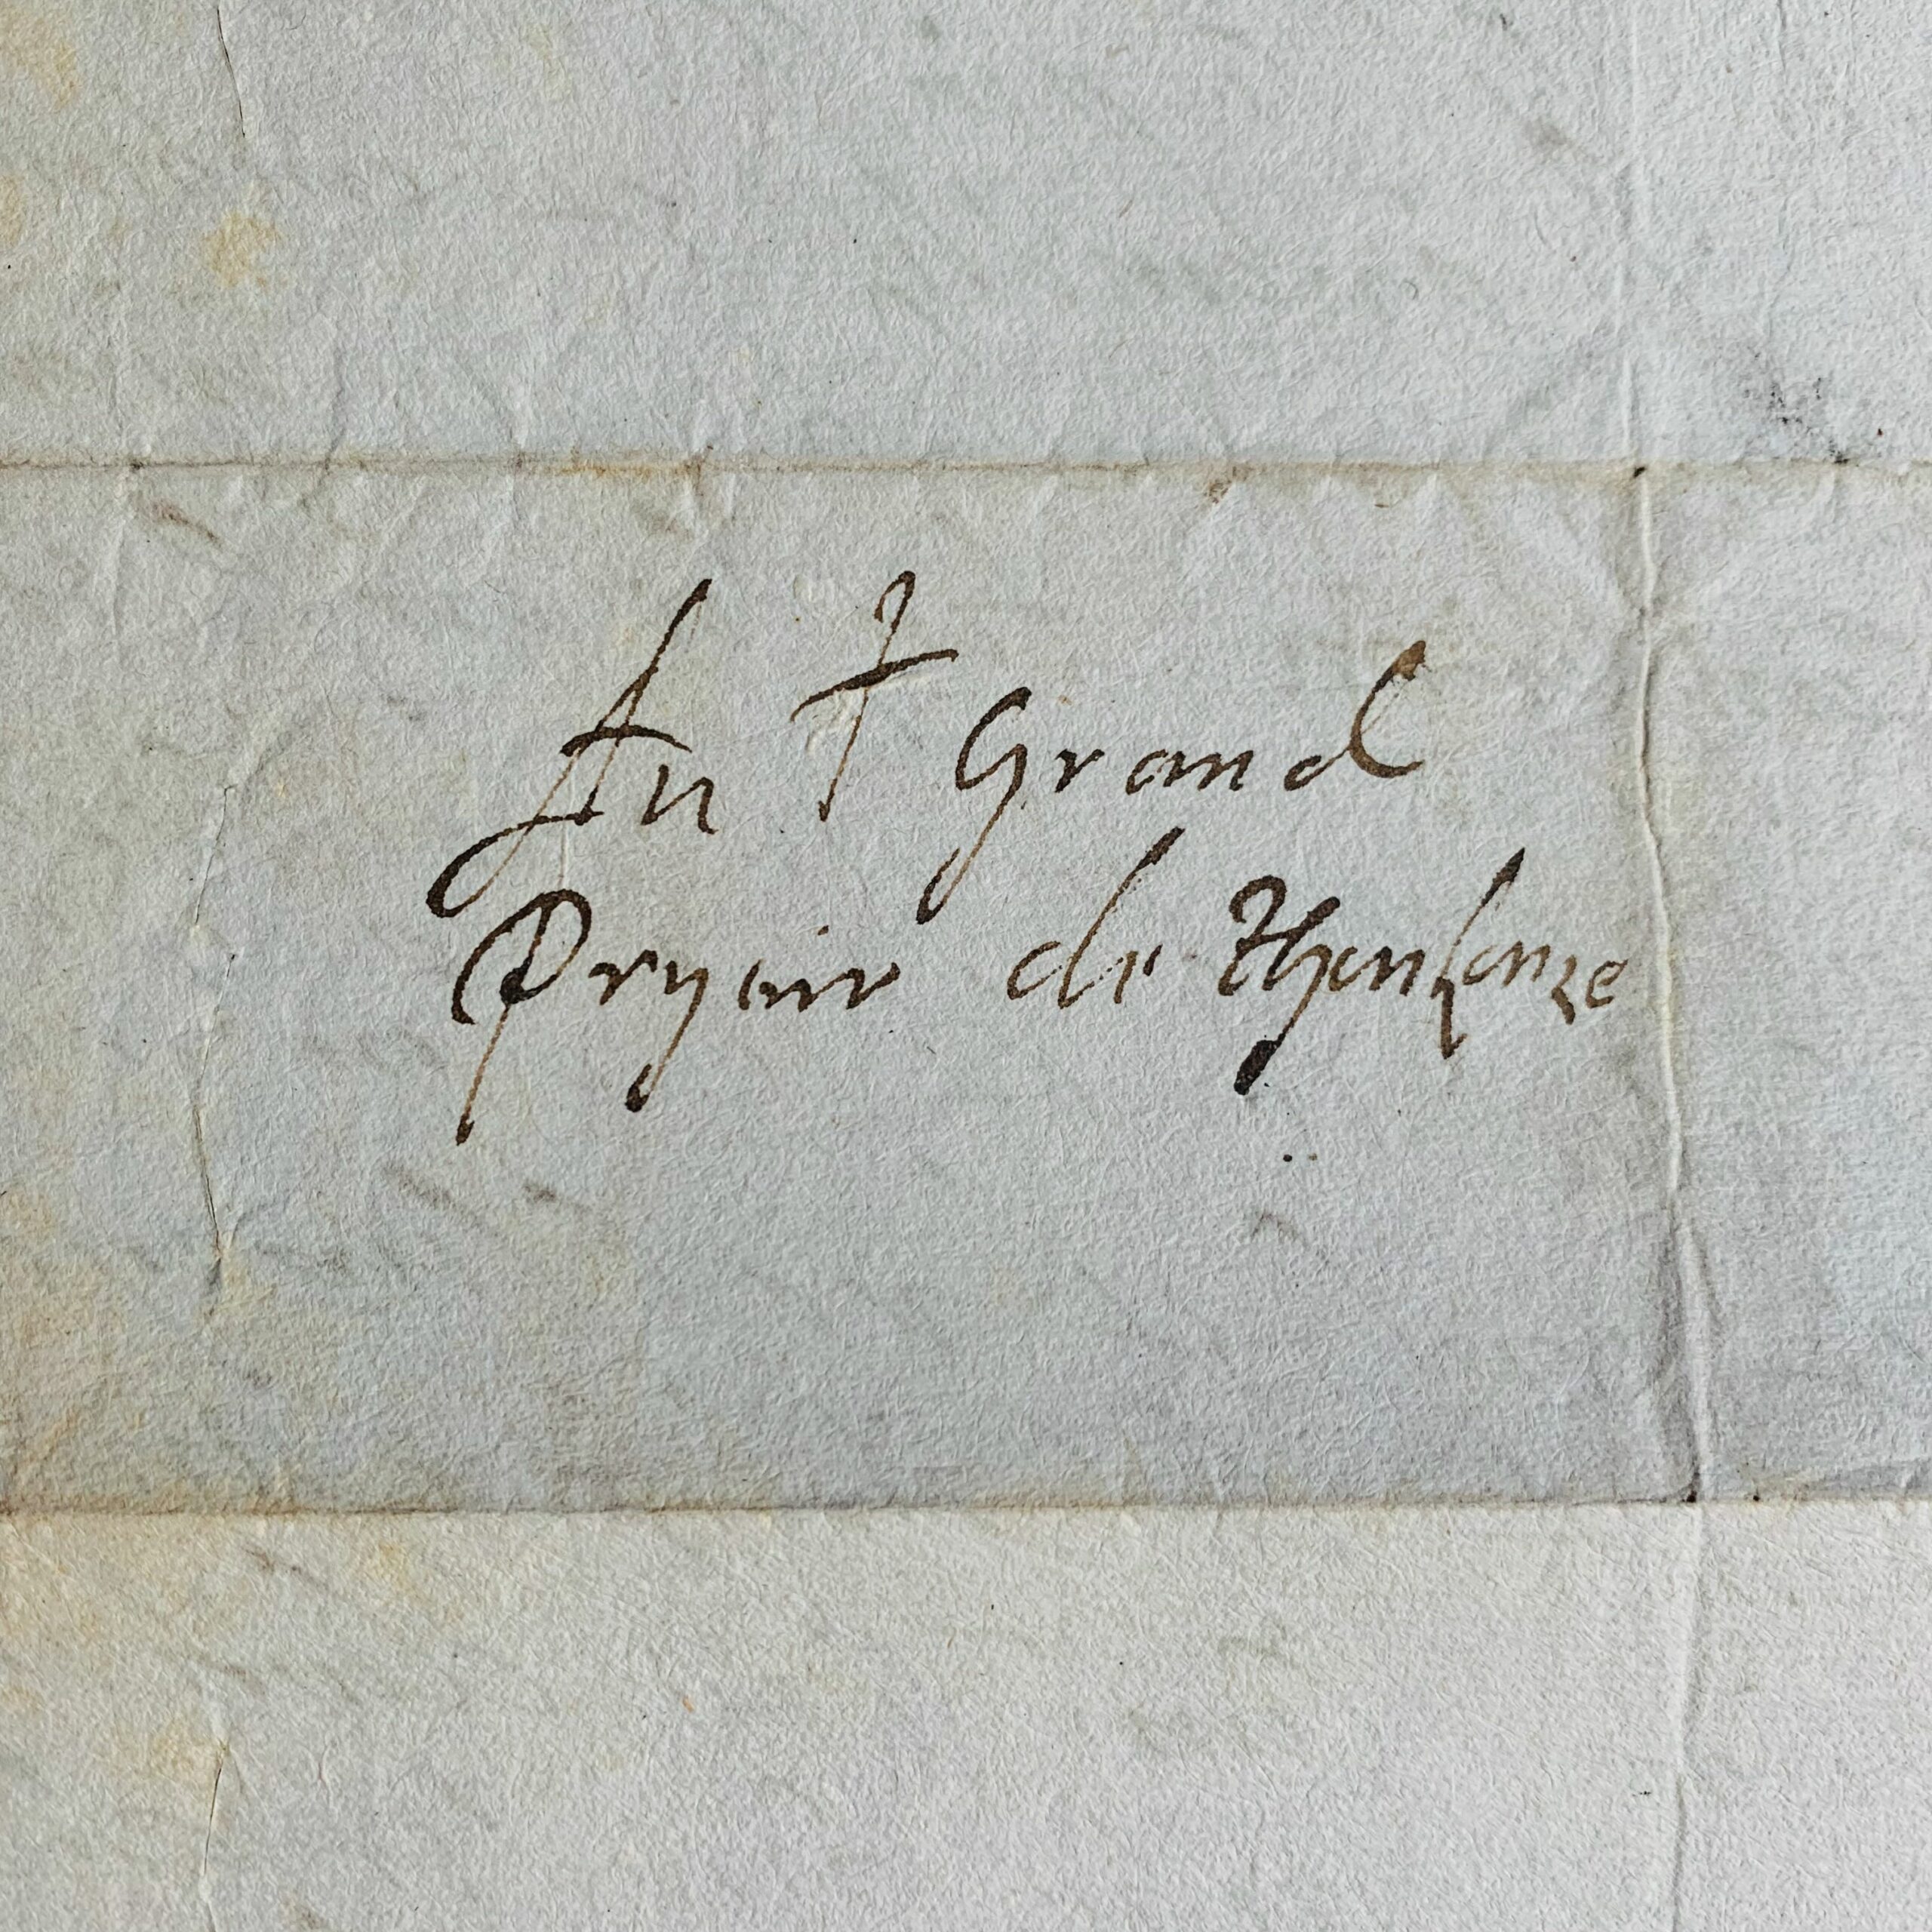 Au † Grand
Pryeur de Tholouze